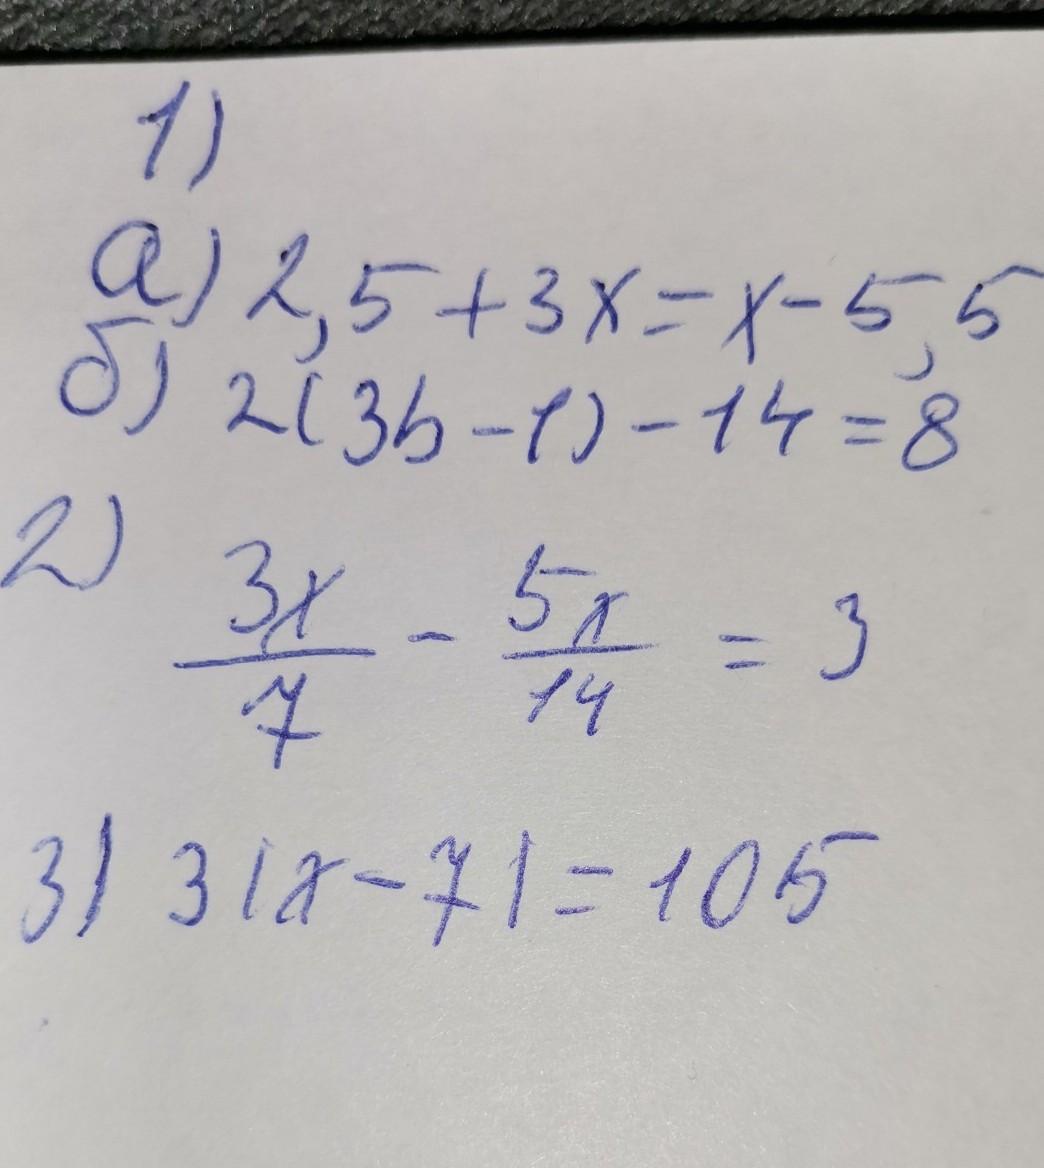 1)
а) 2,5 + 3x = x - 5,5
б) 2(3b - 1) - 14 = 8
2) 3x/7 - 5x/14 = 3
3) 3|x - 7| = 105